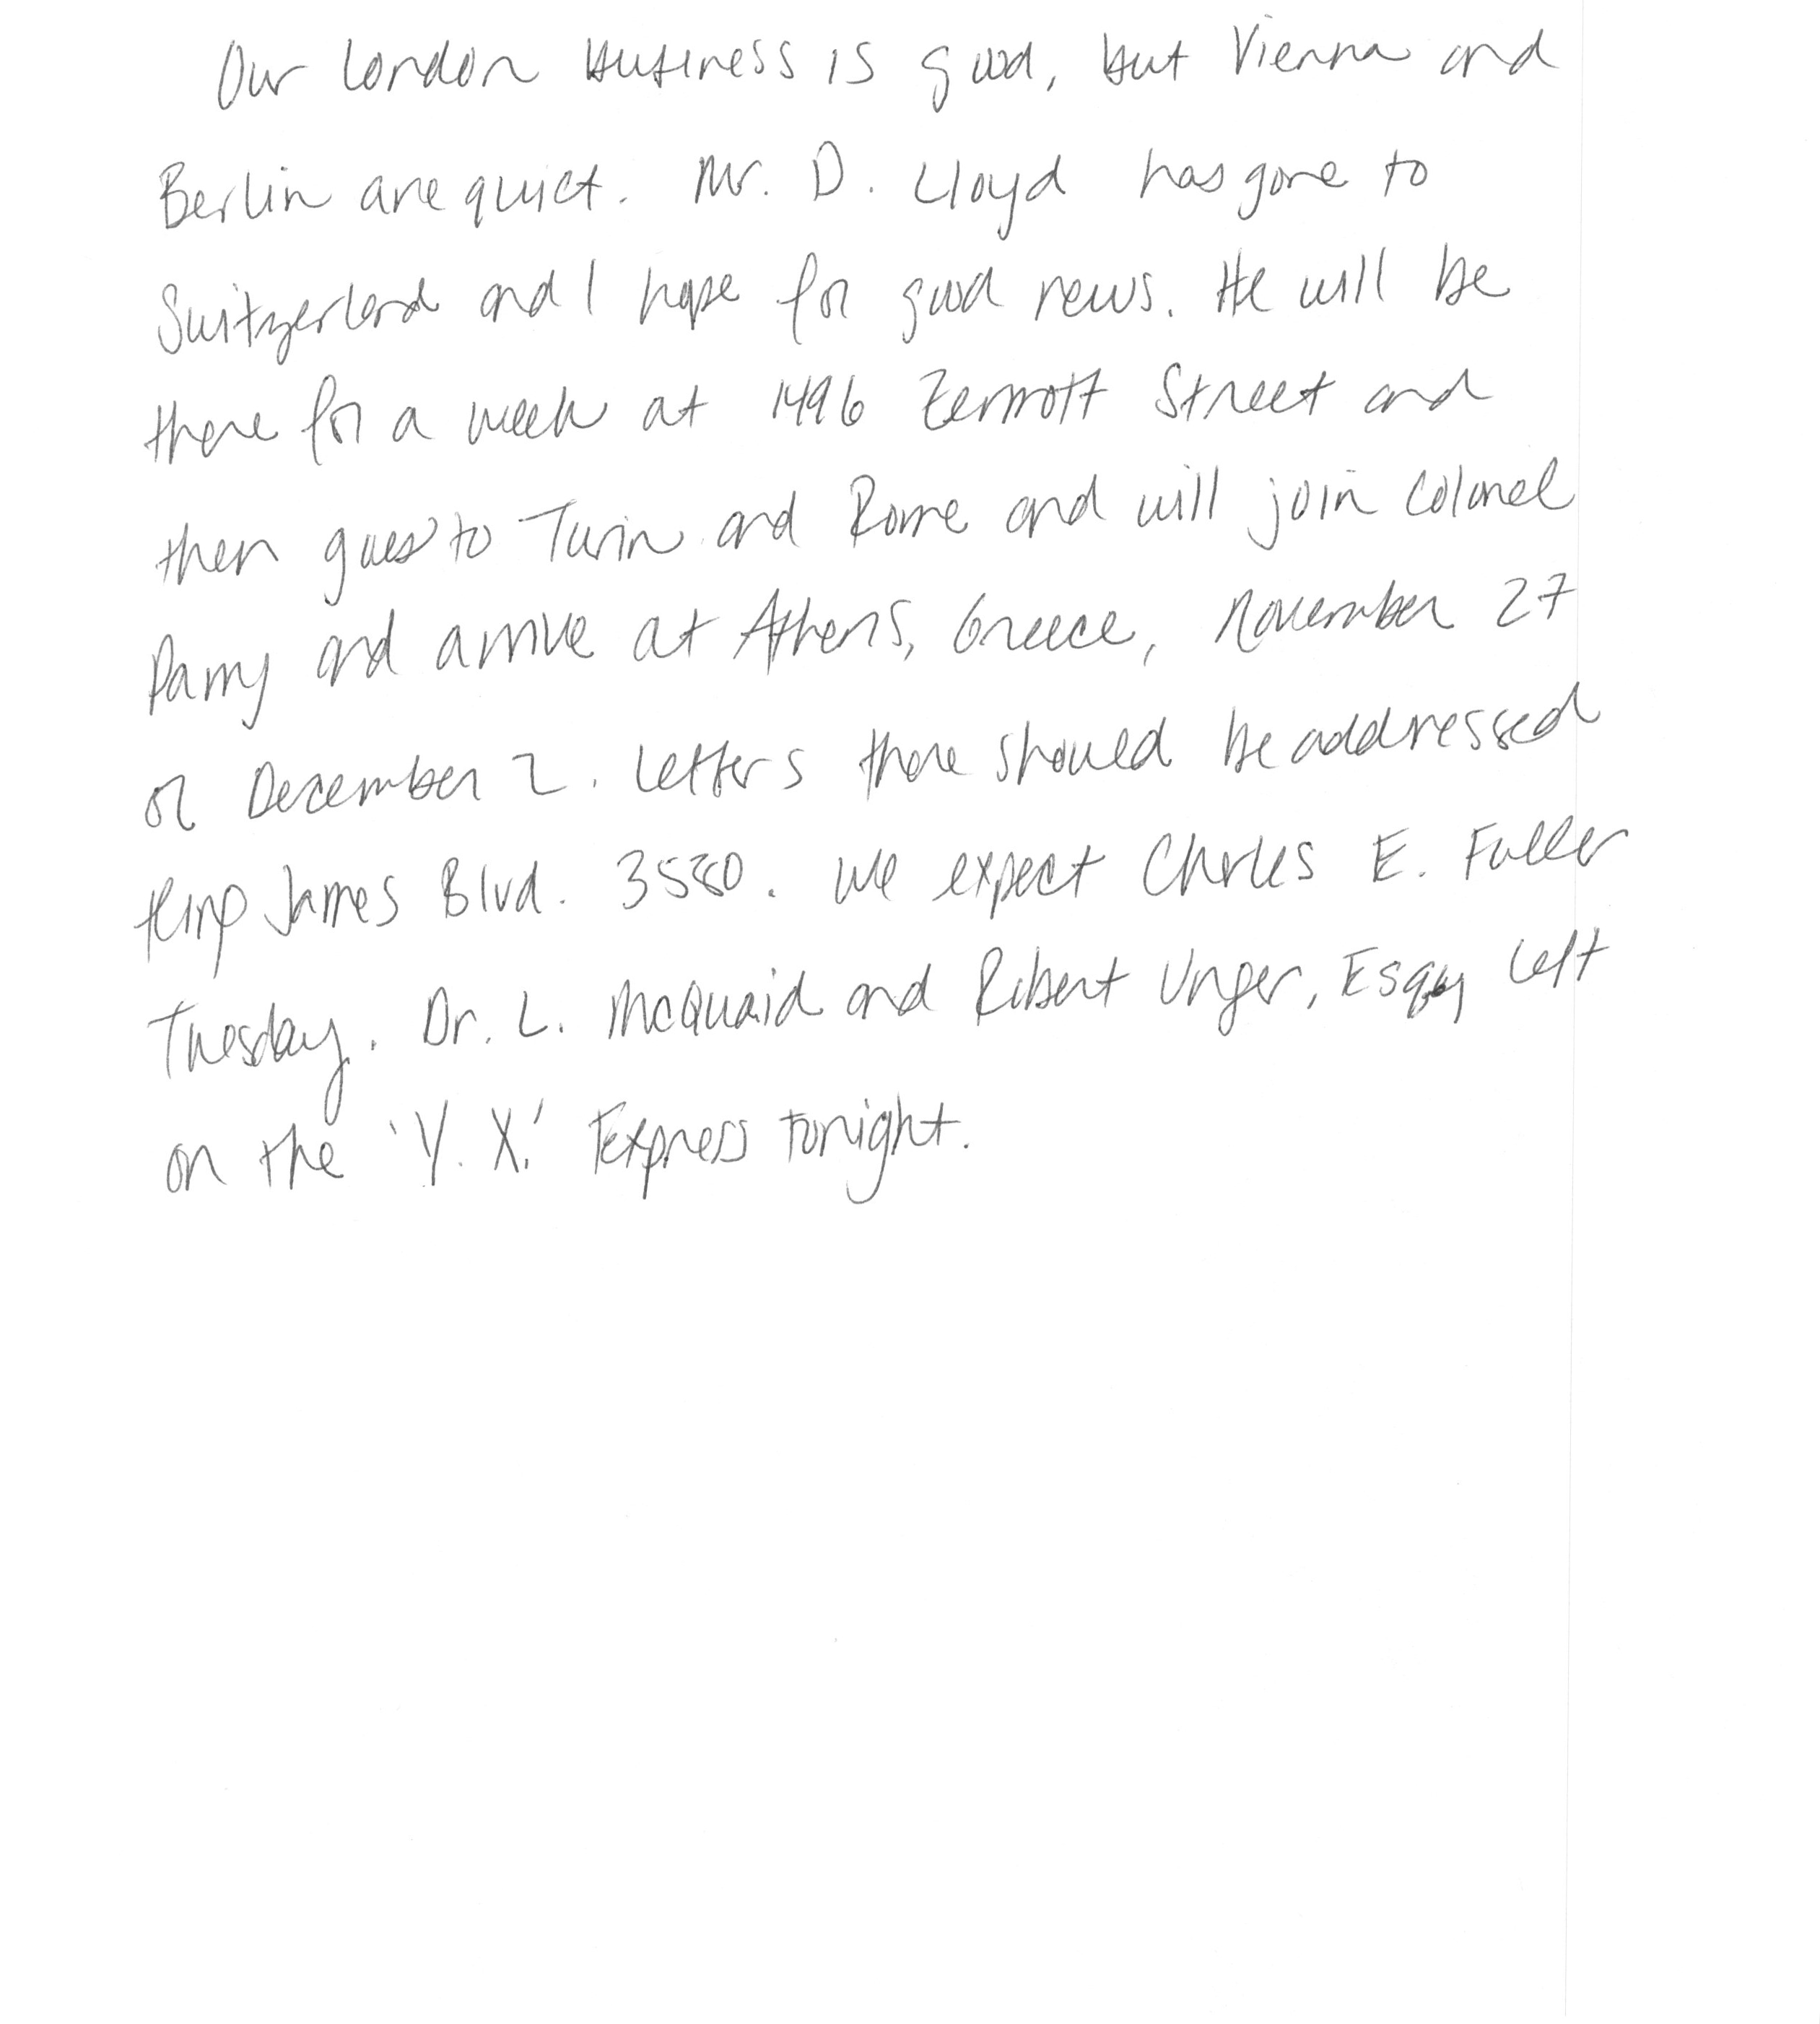 Our London business is good, but Vienna and
Berlin are quiet. Mr. D. Lloyd has gone to
Switzerland and I hope for good news. He will be
there for a week at 1496 Zermott Street and
then goes to Turin and Rome and will join Colonel
Parry and arrive at Athens, Greece, November 27
or December 2. Letters there should be addressed
King James Blvd. 3580. We expect Charles E. Fuller
Tuesday. Dr. L. McQuaid and Robert Unger, Esq., left
on the 'Y. X.' Express tonight.